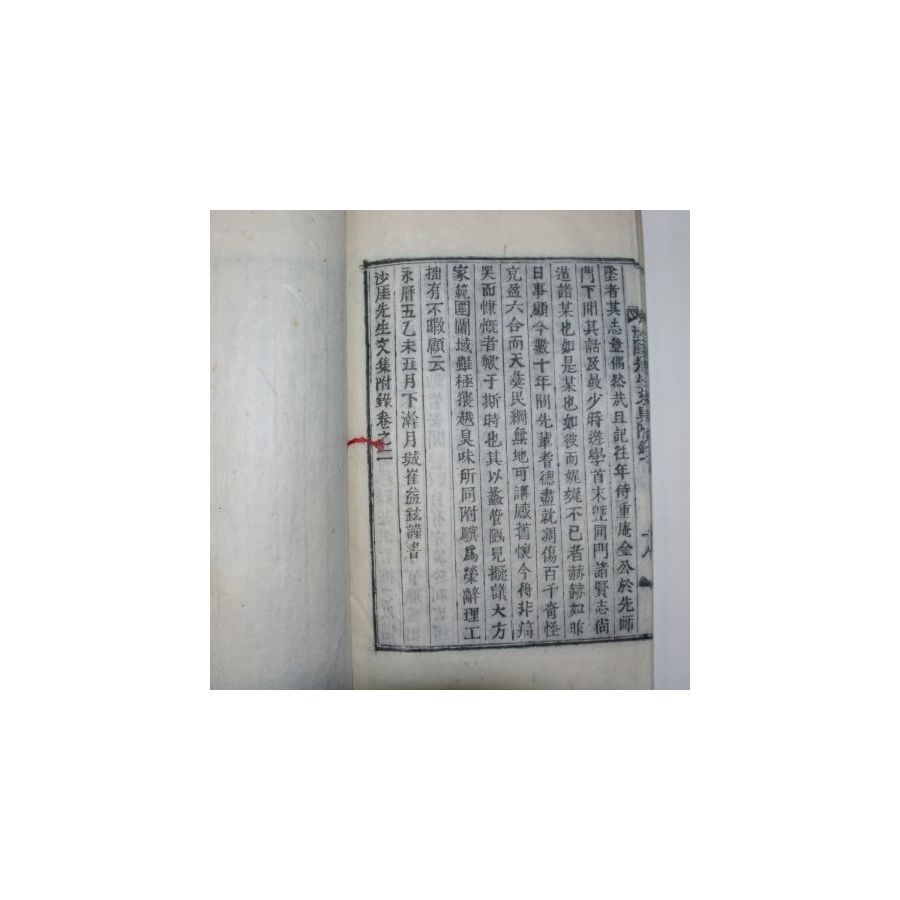 墜者其志豈偶然哉且記往年侍重庵金公於先師
門下聞其話及鼓少時遊學首末曁同門諸賢志尙
道諸某也如是某也如彼而娓娓不已者赫赫如昨
日事顧今數十年間先輩耆德盡就凋傷百千奇怪
充盈六合而天彛民綱無地可講感舊懷今得非痛
哭而慷慨者歟于斯時也其以蠡管陋見擬議大方
家範圍闊域雖極猥越臭味所同附驥爲榮辭理工
拙有不暇顧云
永曆五乙未五月下澣月城崔益鉉謹書
沙厓先生文集附錄卷之二